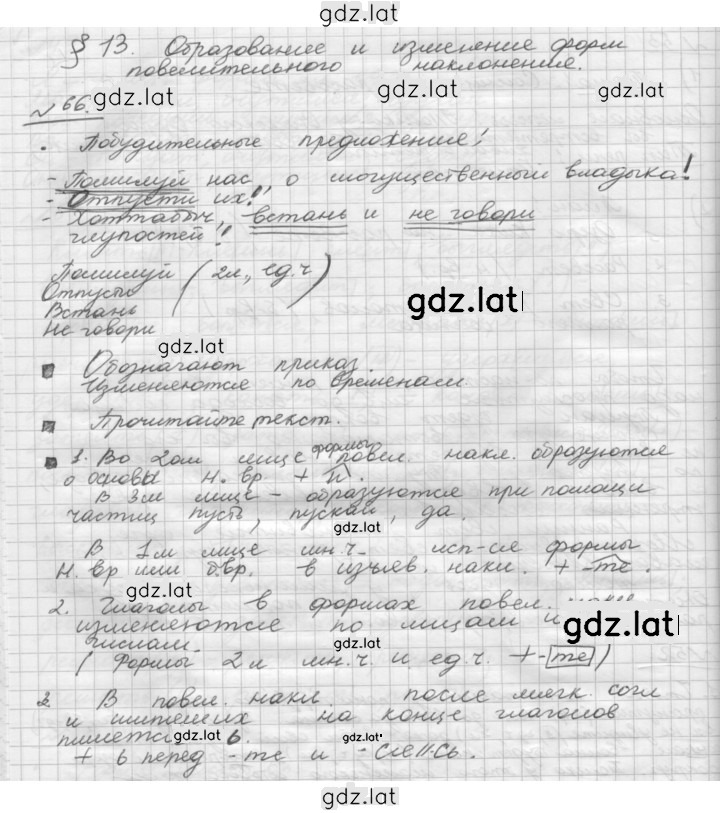 gdz.lat
§ 13. Образование и изменение форм
повелительного наклонения.
gdz.lat gdz.lat
№66.
• Побудительные предложения!
- Помилуй нас, о могущественный владыка!
- Отпусти их!
gdz.lat
- Хоттабыч, встань и не говори
глупостей!
Помилуй (2л., ед.ч)
Отпусти
Встань
gdz.lat
Не говори
gdz.lat
Обозначают приказ.
Изменяются по временам.
Прочитайте текст.
1. Во 2ом лице формы повел. накл. образуются
о основы н. вр + и.
В 3м лице - образуются при помощи
частиц пусть, пускай, да.
gdz.lat
В 1м лице мн.ч. исп-ся формы
н. вр или б.вр. в изъяв. накл. + -те.
gdz.lat
2. Глаголы в формах повел.
изменяются по лицам и
gdz.lat
числам.
gdz.lat
(Формы 2л мн.ч. и ед.ч. + -те)
3. В повел. накл после мягк. согл
и шипящих на конце глаголов
пишется ь.
gdz.lat gdz.lat
+ ь перед -те и -ся//-сь.
gdz.lat